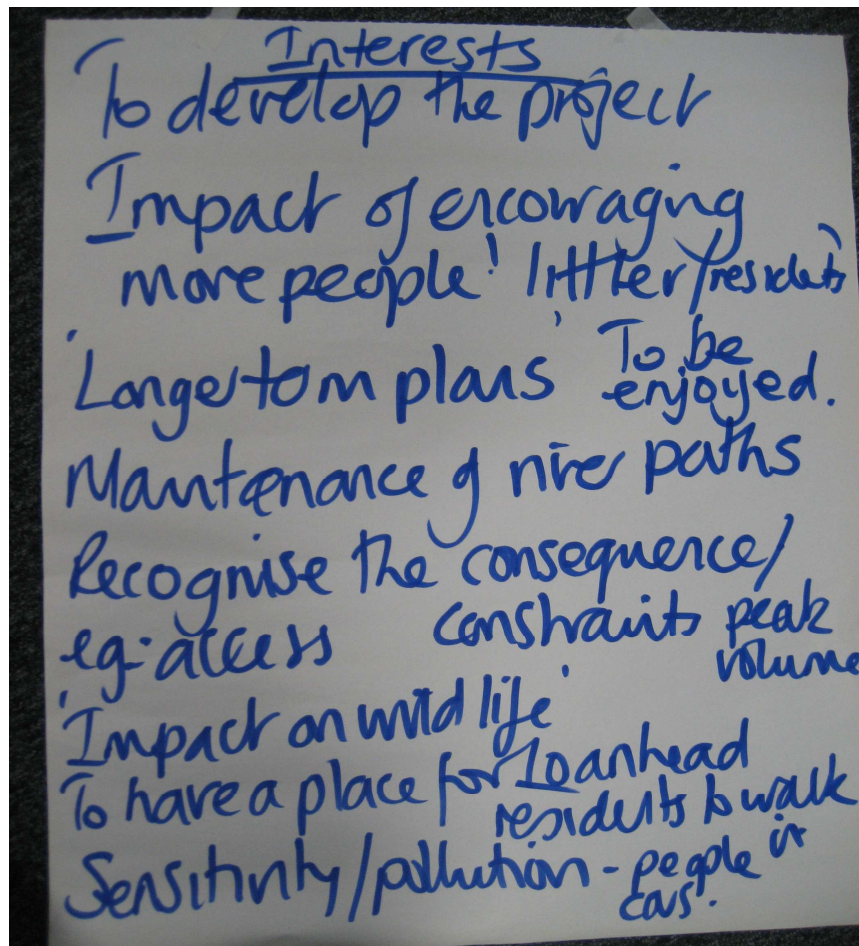 Interests
To develop the project
Impact of encouraging
more people! litter/residents
'Longer tom plans' To be
enjoyed.
Maintenance of river paths
Recognise the consequence/
eg. access constraints peak
volume
'Impact on wild life'
To have a place for Loanhead
residents to walk
Sensitivity/pollution - people in
cars.